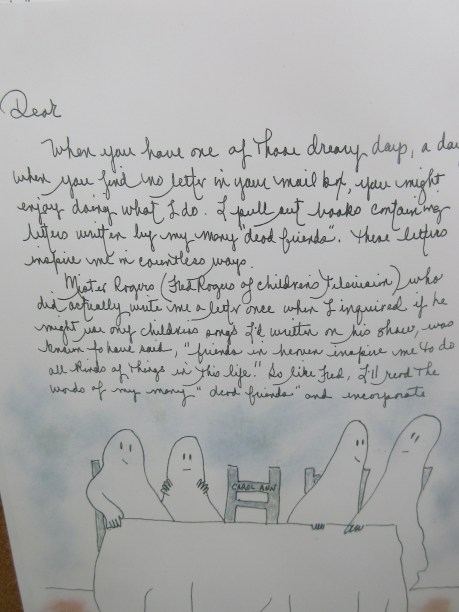 Dear
When you have one of those dreary days, a day
when you find no letter in your mail box, you might
enjoy doing what I do. I pull out books containing
letters written by my many "dead friends". These letters
inspire me in countless ways.
Mister Rogers (Fred Rogers of children's television) who
did actually write me a letter once when I inquired if he
might use my children's songs I'd written on his show, was
known to have said, "friends in heaven inspire me to do
all kinds of things in this life." So like Fred, I'll read the
words of my many "dead friends" and incorporate
CAROL ANN